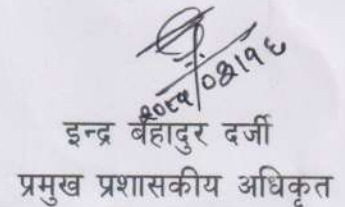 २०८१/०४/१६
इन्द्र बहादुर दर्जी
प्रमुख प्रशासकीय अधिकृत